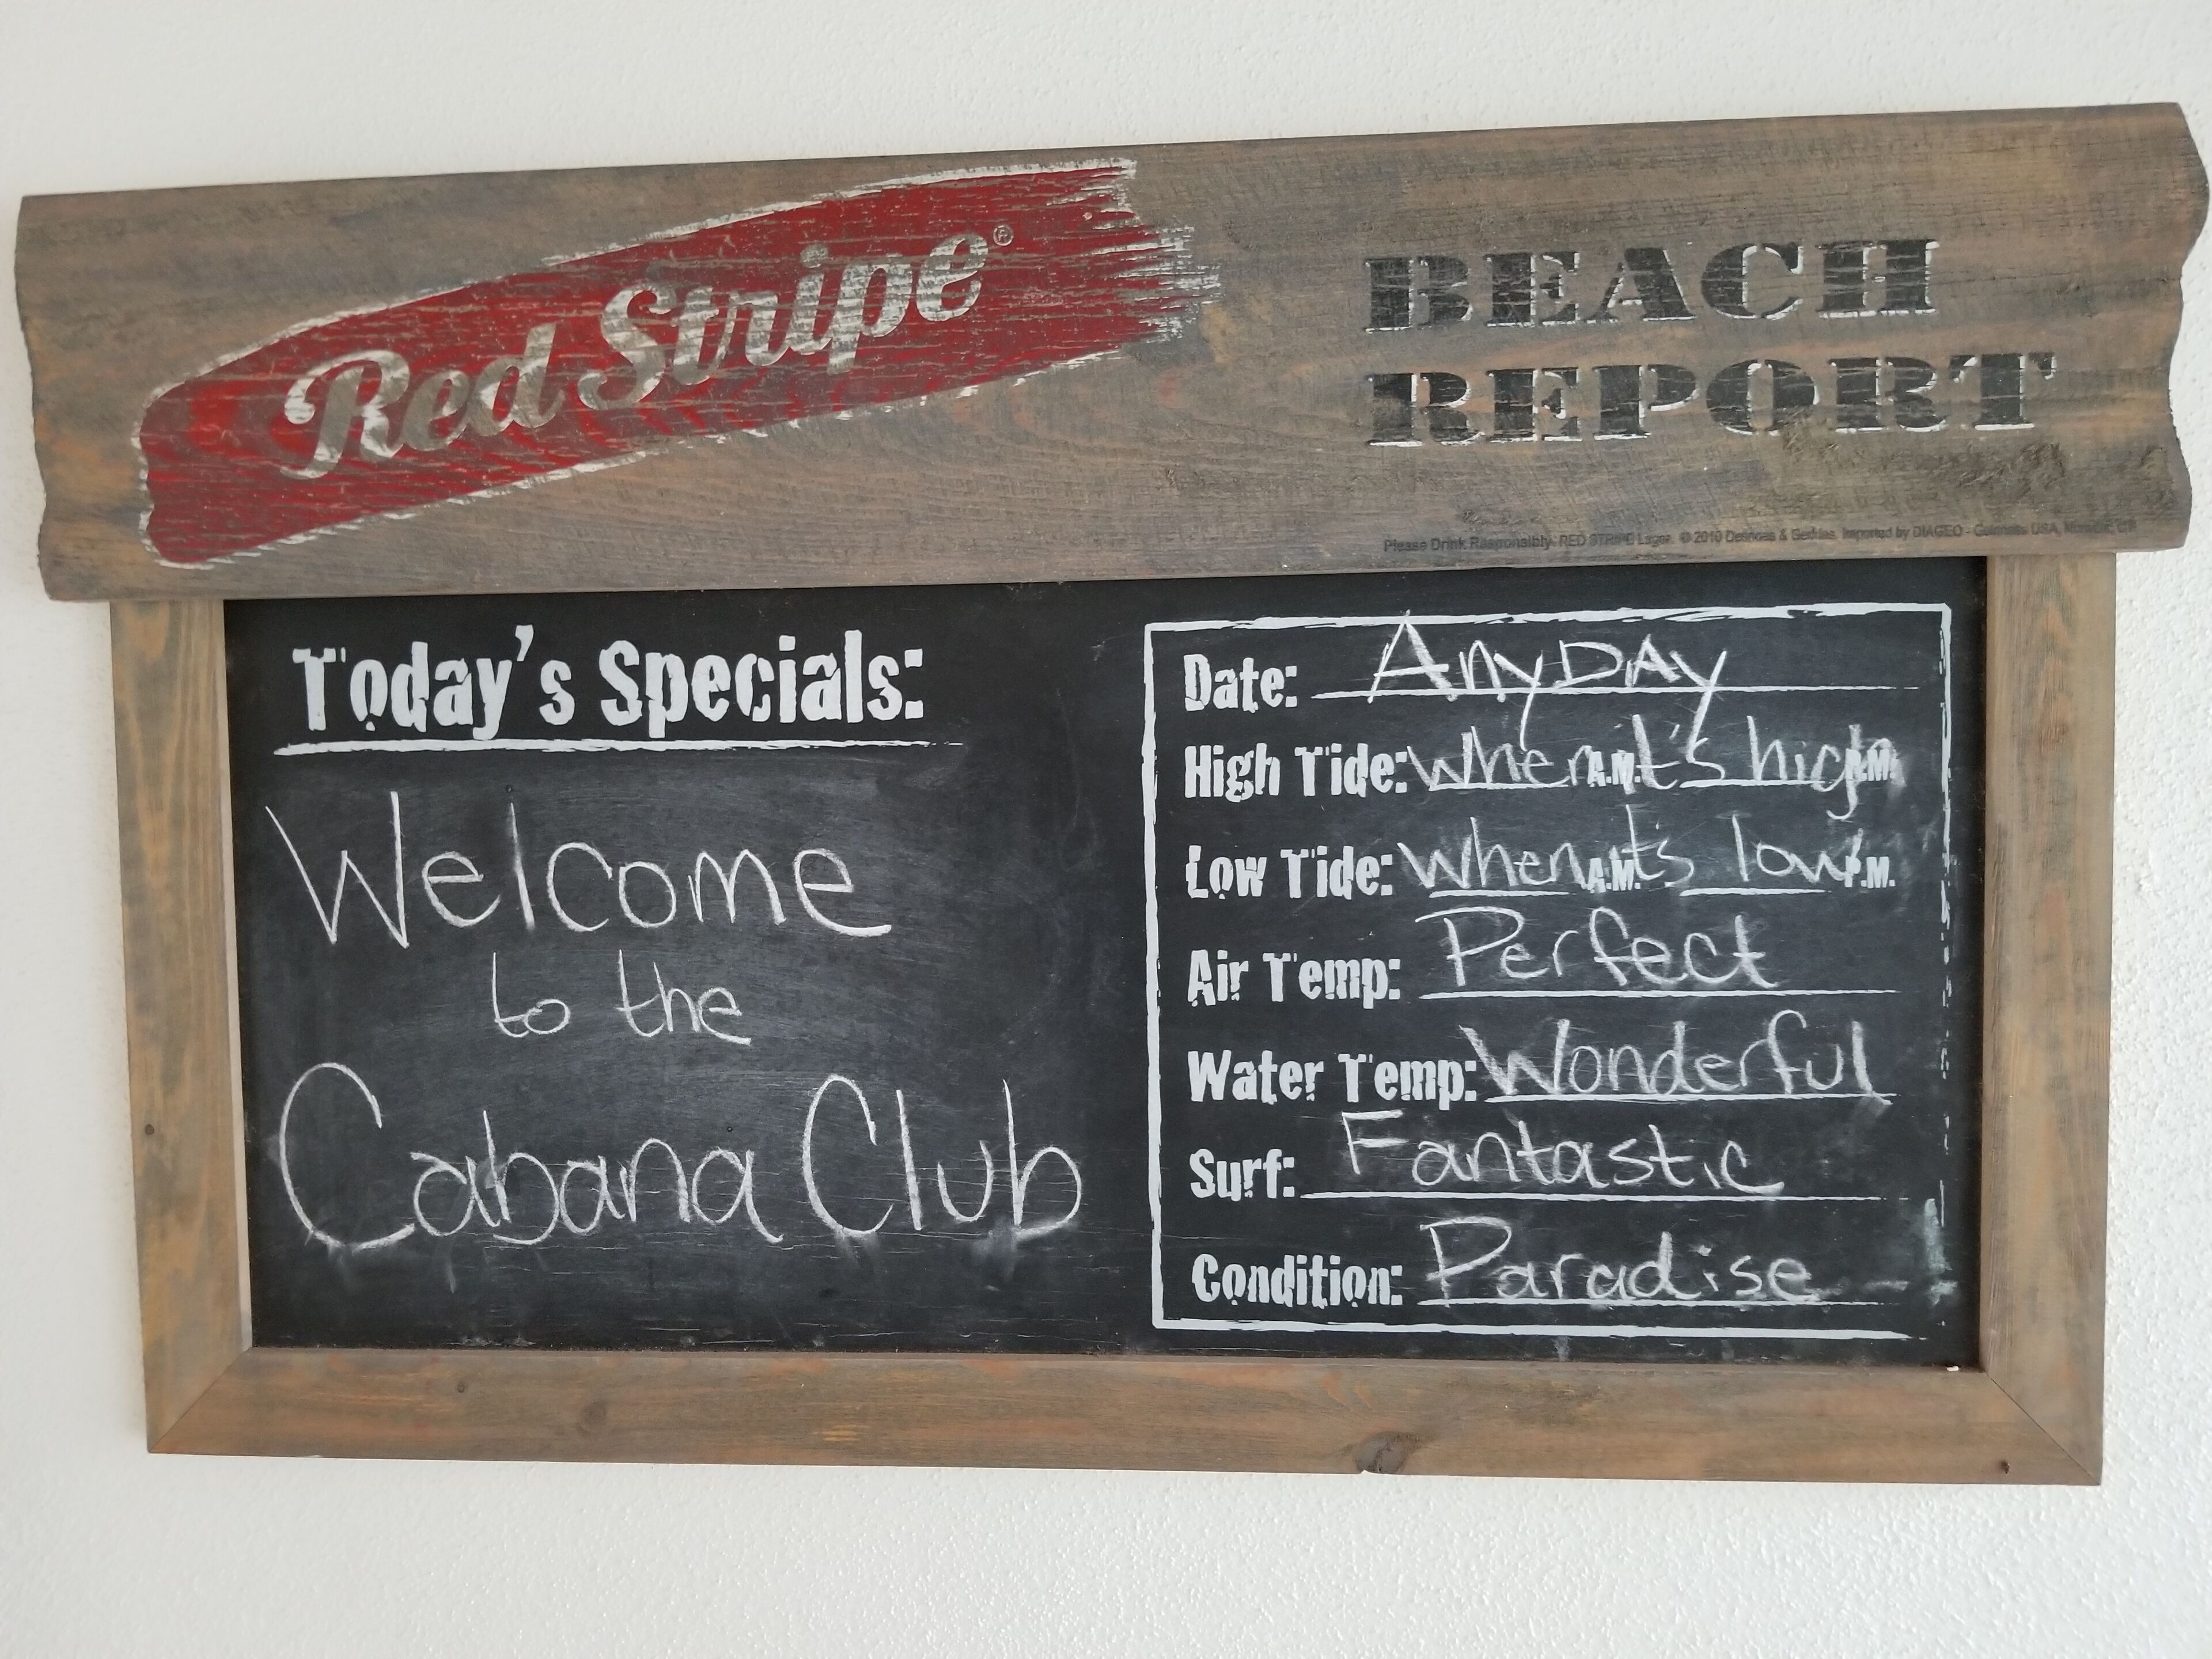 Red Stripe®
BEACH
REPORT
Please Drink Responsibly. RED STRIPE Lager. © 2010 Desnoes & Geddes, Imported by DIAGEO - Guinness USA, Norwalk, CT
Today's Specials:
Welcome
to the
Cabana Club
Date: AnyDAy
High Tide: when A.M. it's high P.M.
Low Tide: when A.M. it's low P.M.
Air Temp: Perfect
Water Temp: Wonderful
Surf: Fantastic
Condition: Paradise